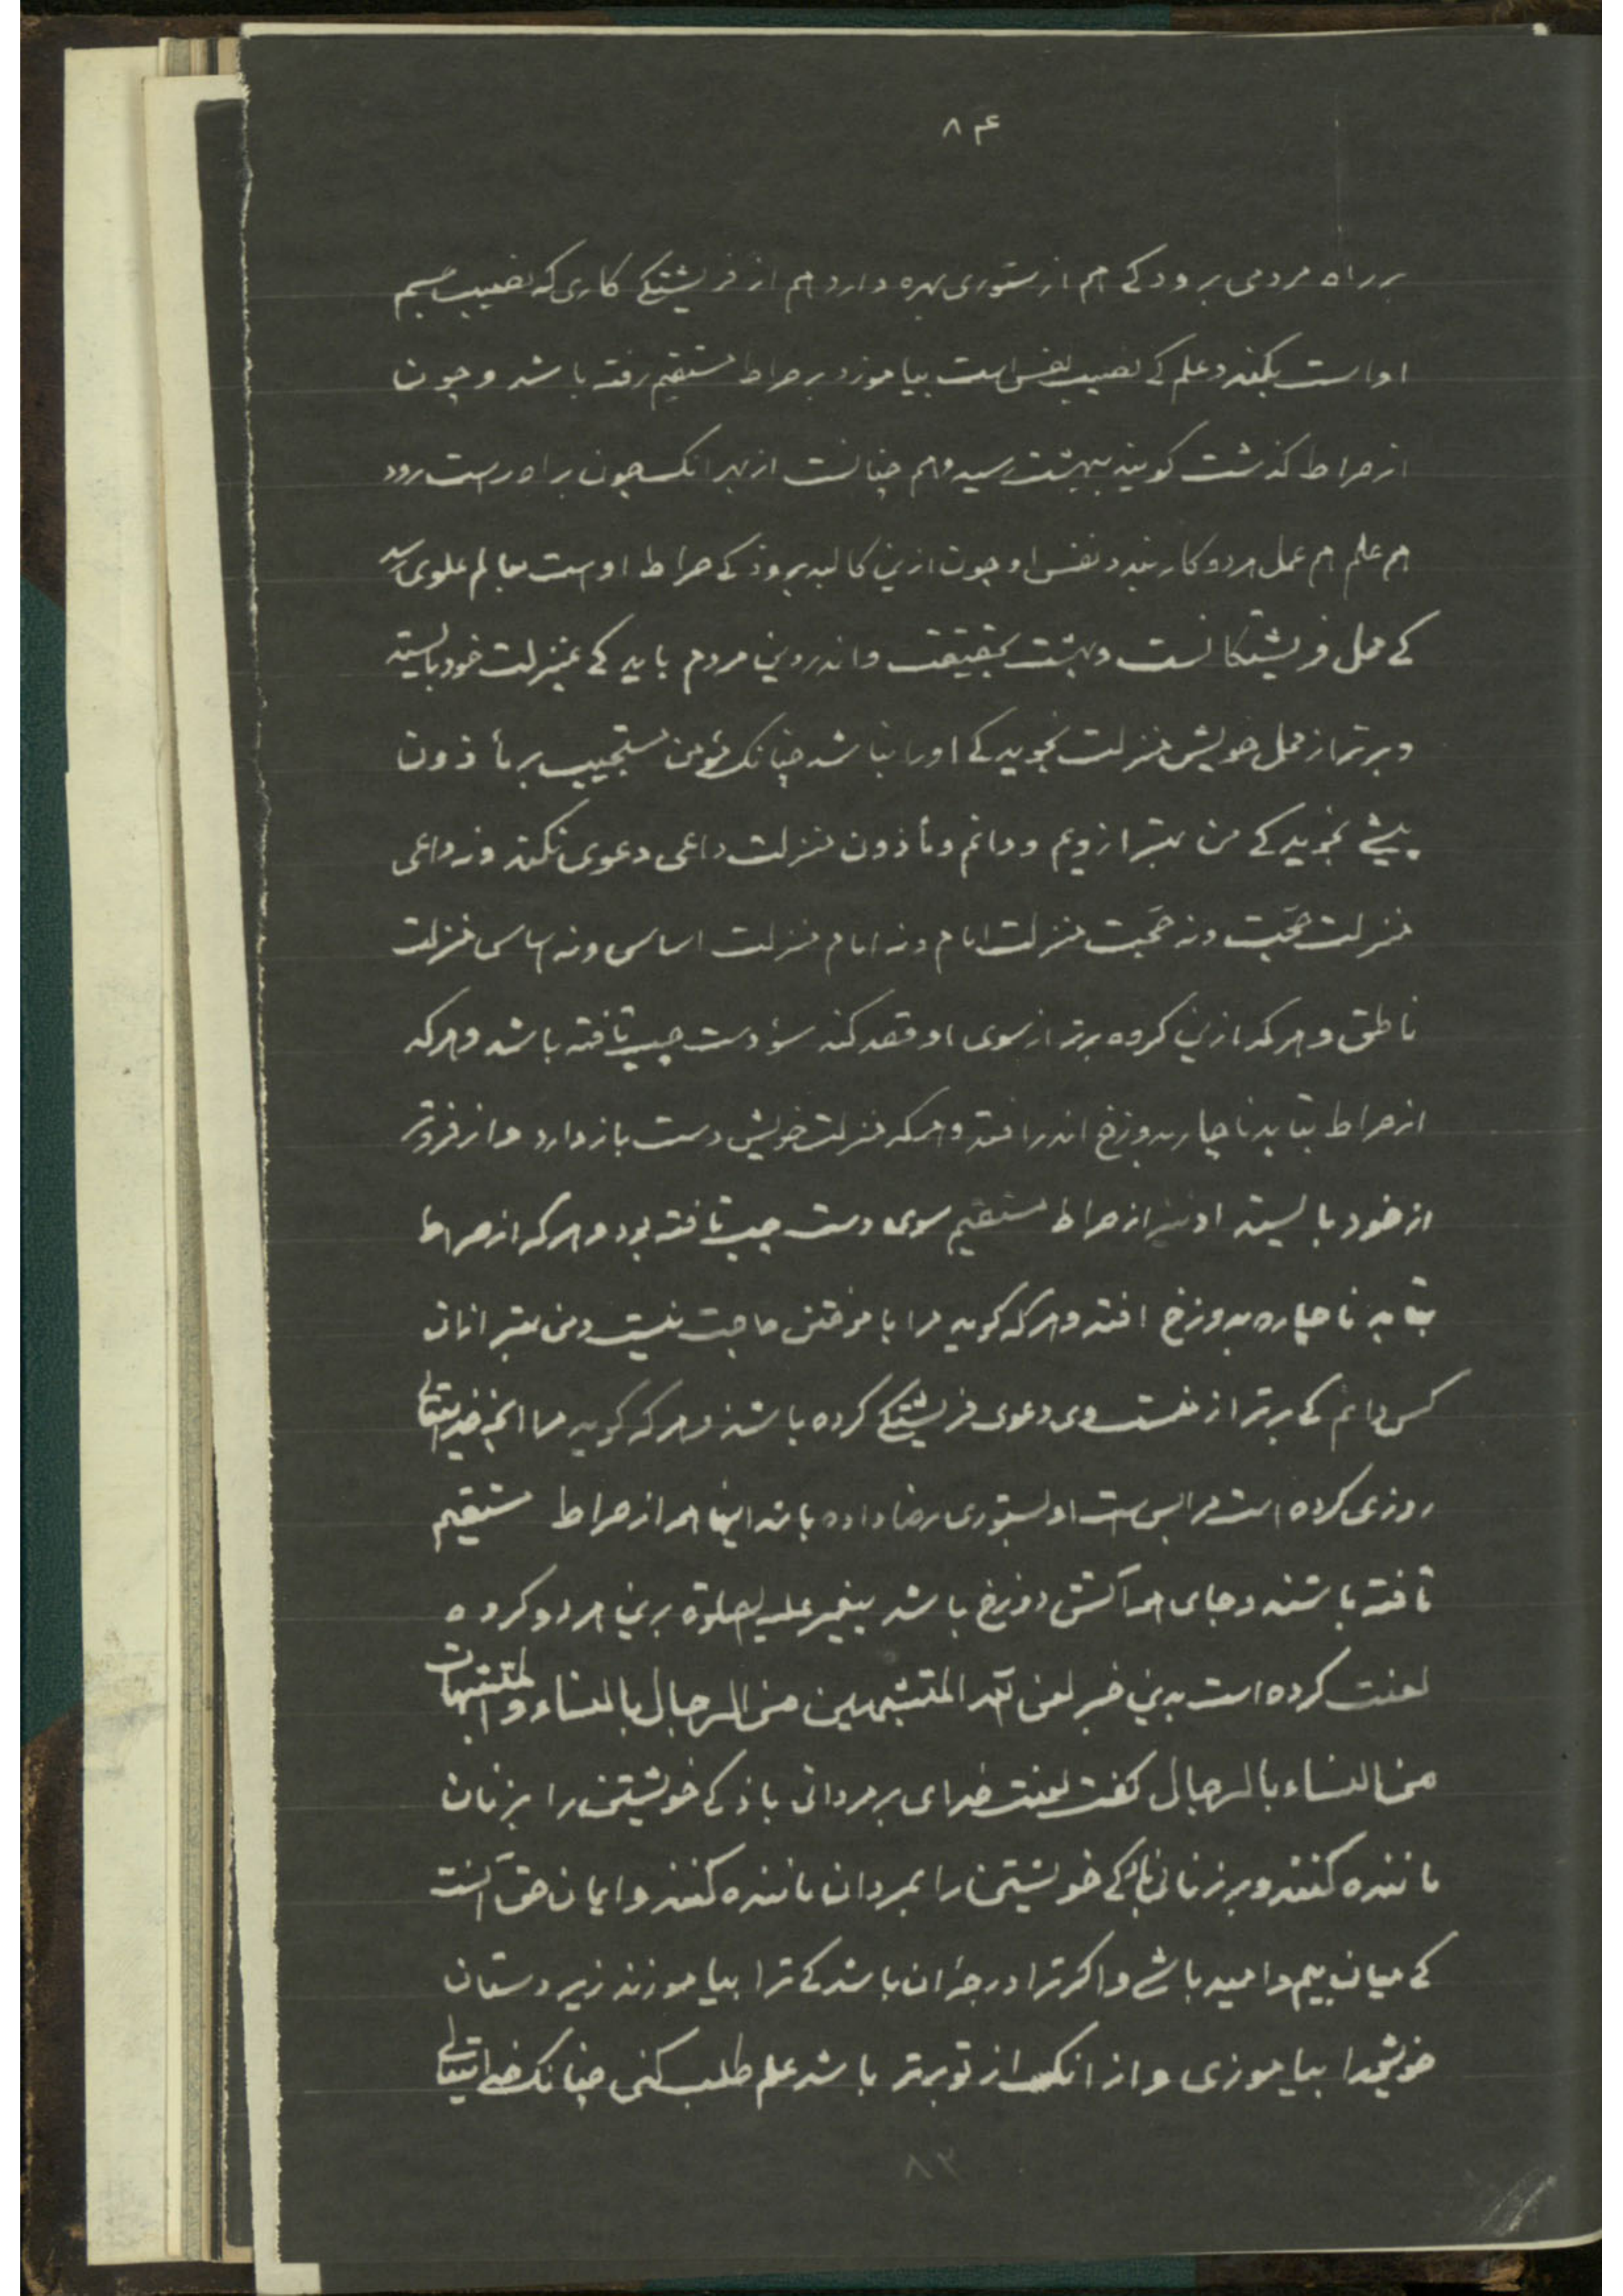 ۸۴
بر راه مردمی برود کے هم از ستوری بهره دارد هم از فریشتگے کاری که نصیب جسم
او است بکند و علم کے نصیب نفس است بیاموزد بر صراط مستقیم رفته باشد و چون
از صراط گذشت گویند ببهشت رسید و هم چنانست از بهر انک چون براه راست رود
هم علم هم عمل هر دو کار بندد نفس او چون ازین کالبد برود کے صراط اوست بعالم علوی رسد
کے محل فریشتگانست و بهشت بحقیقت و اندرین مردم باید کے بمنزلت خود بایستد
و برتر از محل خویش منزلت نجوید کے او را نباشد چنانک مؤمن مستجیب بر مأذون
پیشے نجوید کے من بهتر از ویم و دانم و مأذون منزلت داعی دعوی نکند و نه داعی
منزلت حجت و نه حجت منزلت امام و نه امام منزلت اساسی و نه اساسی منزلت
ناطق و هر که ازین گروه برتر از سوی او قصد کند سؤ دست چپ تافته باشد و هر که
از صراط بتابد ناچار بدوزخ اندر افتد و هر که منزلت خویش دست باز دارد و از فروتر
از خود بایستد او نیز از صراط مستقیم سوی دست چپ تافته بود و هر که از صراط
بتابد ناچاره بدوزخ افتد و هر که گوید مرا باموختن حاجت نیست و من بهتر ازان
کس دانم کے برتر از منست وی دعوی فریشتگے کرده باشد و هر که گوید مرا انچ خدایتعالی
روزی کرده است مرا بس است او بستوری رضا داده باشد اینها همه از صراط مستقیم
تافته باشند و جای همه آتش دوزخ باشد پیغمبر علیه الصلوة برین هر دو گروه
لعنت کرده است بدین خبر لعن الله المتشبهین من الرجال بالنساء و المتشبهات
من النساء بالرجال گفت لعنت خدای بر مردانی باذ کے خویشتن را بزنان
ماننده کنند و بر زنانی باد کے خویشتن را بمردان ماننده کنند و ایمان حق آنست
کے میان بیم و امید باشے و اگر ترا درجۀ ان باشد کے ترا بیاموزند زیر دستان
خویش را بیاموزی و از انکس از تو برتر باشد علم طلب کنی چنانک خدایتعالی
۸۳